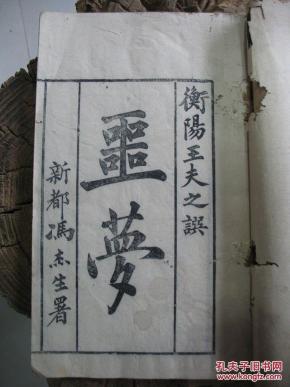 衡陽王夫之譔
噩夢
新都馮杰生署
孔夫子旧书网